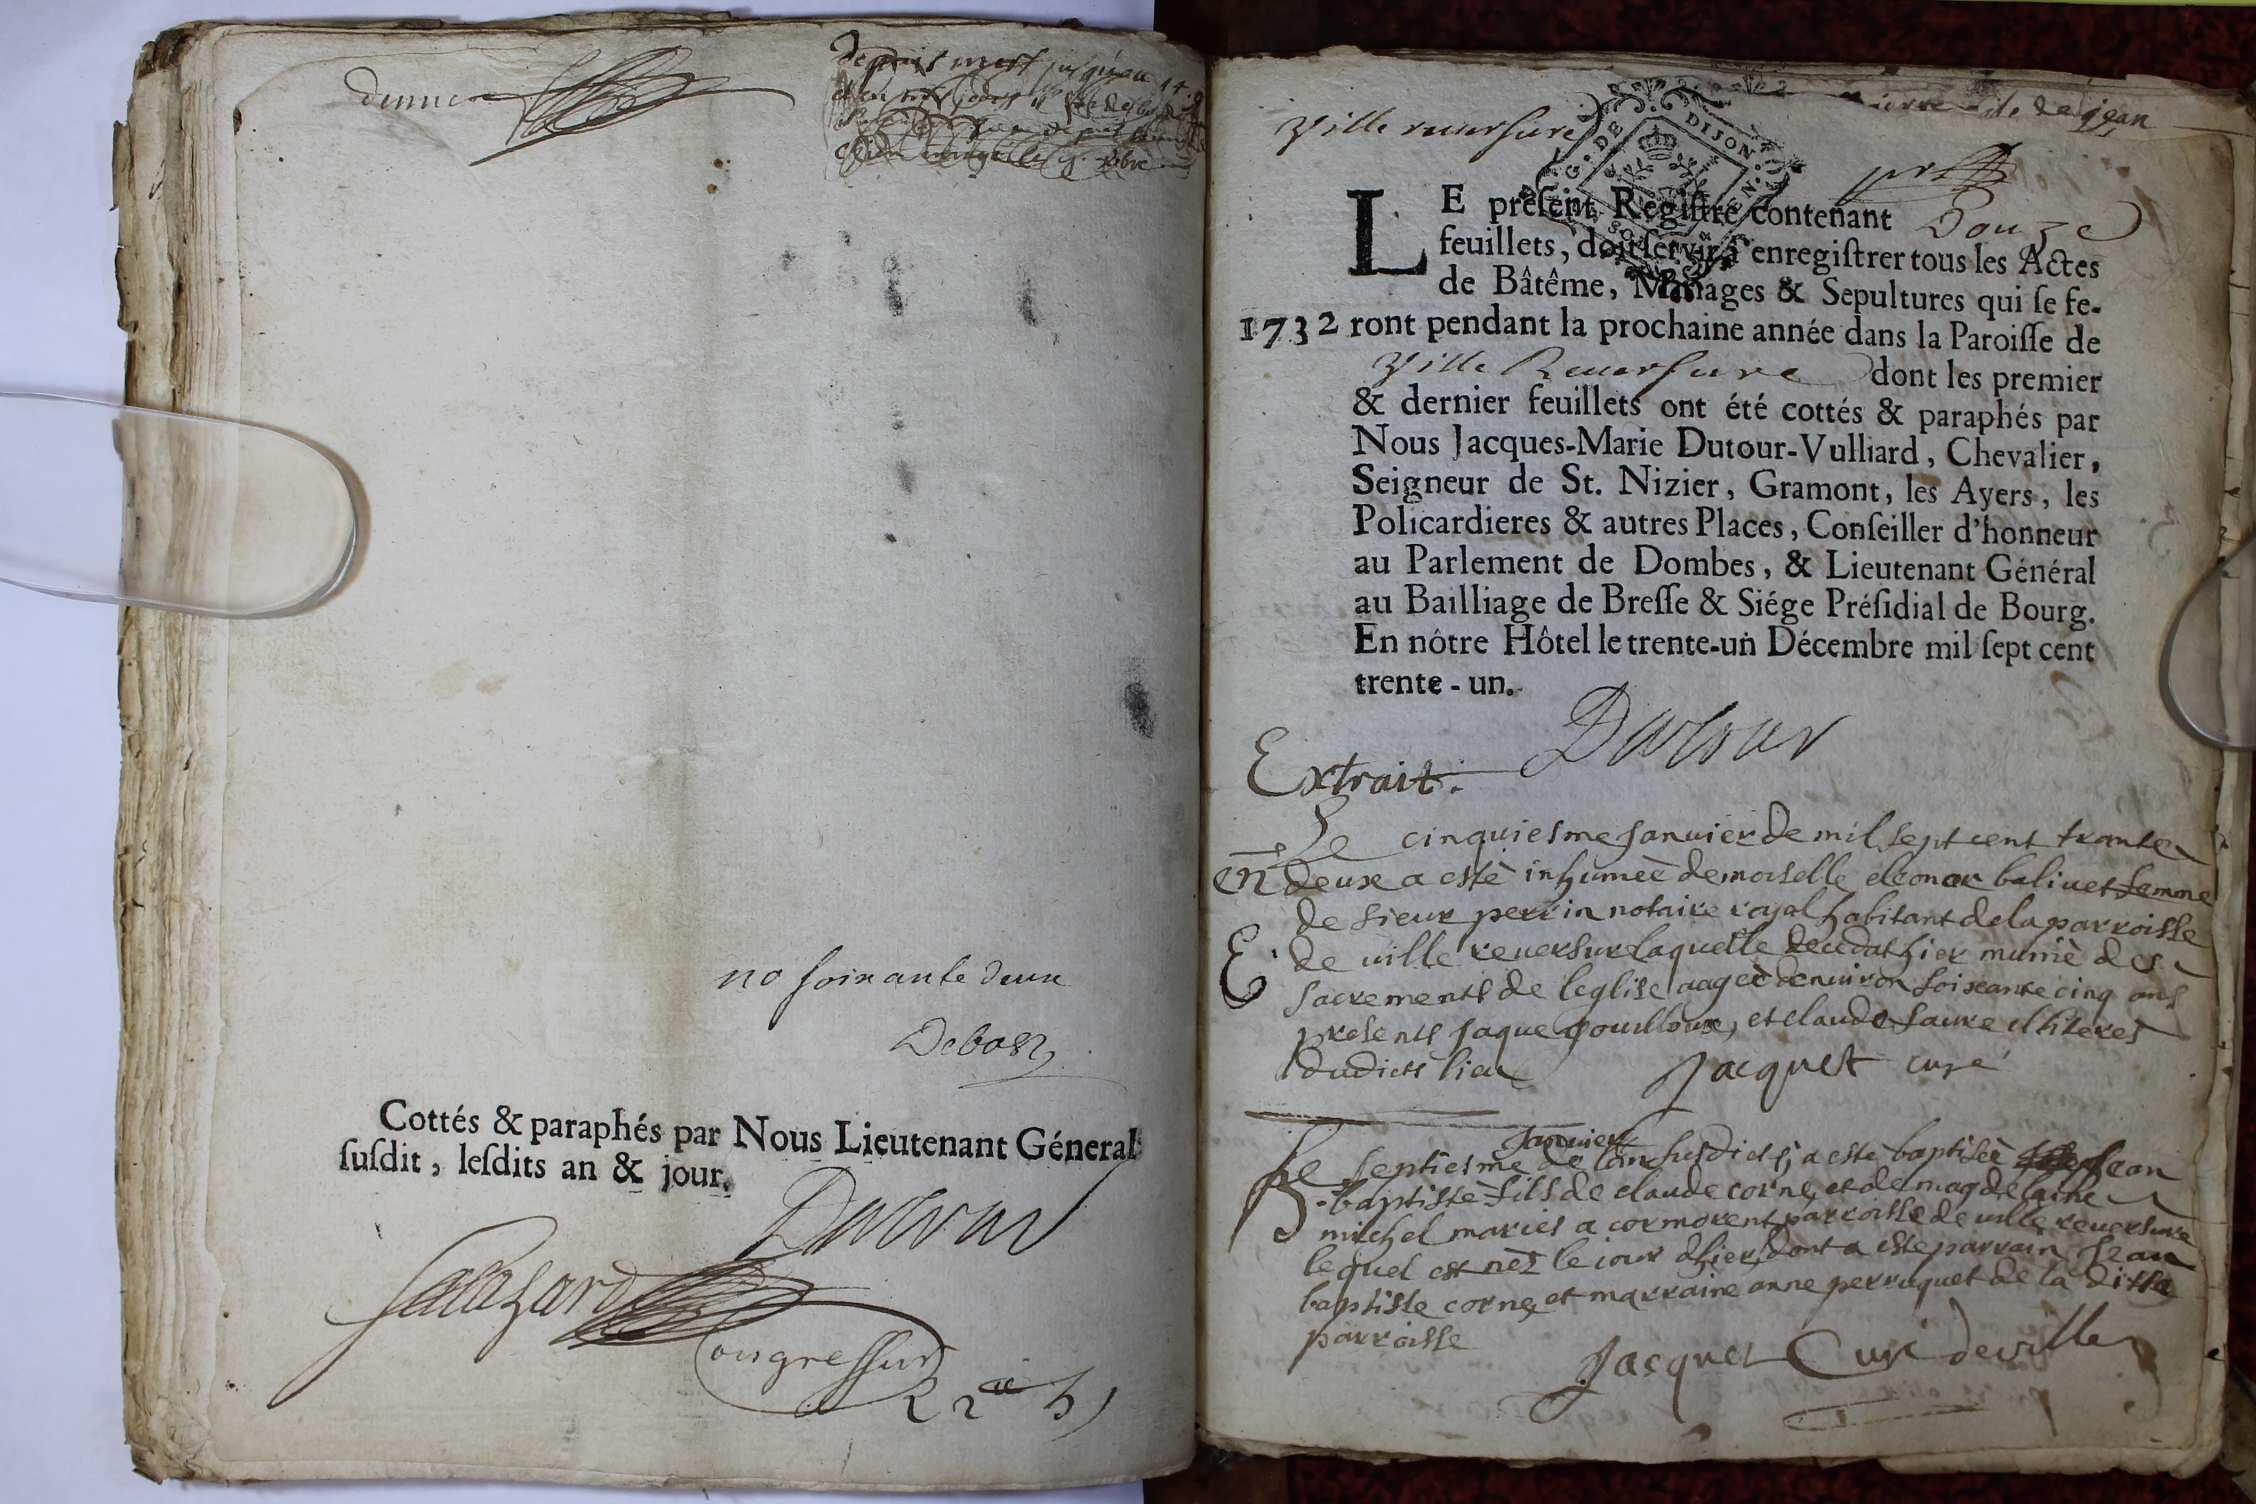 depuis mars jusqu'au 14
no soixante deux
Cottés & paraphés par Nous Lieutenant Géneral
ſuſdit, leſdits an & jour.
Dutour
Ville reuersure
de jean
DE DIJON
LE preſent Regiſtre contenant Douze
feuillets, doit ſervir à enregiſtrer tous les Actes
de Bâtême, Mariages & Sepultures qui ſe fe-
1732 ront pendant la prochaine année dans la Paroiſſe de
Ville Reuersure dont les premier
& dernier feuillets ont été cottés & paraphés par
Nous Jacques-Marie Dutour-Vulliard, Chevalier,
Seigneur de St. Nizier, Gramont, les Ayers, les
Policardieres & autres Places, Conſeiller d'honneur
au Parlement de Dombes, & Lieutenant Général
au Bailliage de Breſſe & Siége Préſidial de Bourg.
En nôtre Hôtel le trente-un Décembre mil ſept cent
trente-un.
Dutour
Extrait.
Le cinquiesme januier de mil sept cent trante
en deux a estè inhumeè demoiselle eleonor baliuet femme
de sieur perrin notaire royal habitant de la parroisse
E. de uille reuersure laquelle deceda hier muniè des
sacrements de leglise aageè denuiron soixante cinq ans
presents jaque pouilloux, et claude faure illiteres
dudict lieu Jacquet curé
Januier
Le septiesme de lan susdict, a estè baptiseè jean
baptiste fils de claude corne et de magdelaine
michel mariés a cormorent parroisse de uille reuersure
lequel est nèz le iour dhier, dont a este parrain jean
baptiste corne et marraine anne perruquet de la ditte
parroisse
Jacquet Curé de ville